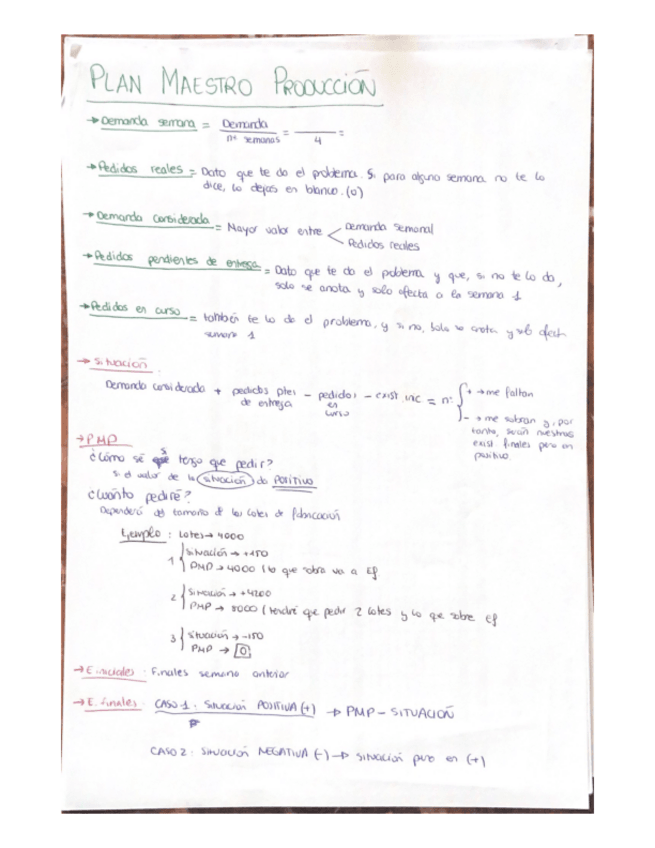 PLAN MAESTRO PRODUCCIÓN
→ Demanda semana = Demanda / nº semanas = ____ / 4 =
→ Pedidos reales = Dato que te da el problema. Si para alguna semana no te lo
dice, lo dejas en blanco. (0)
→ Demanda considerada = Mayor valor entre < Demanda semanal
Pedidos reales
→ Pedidos pendientes de entrega = Dato que te da el problema y que, si no te lo da,
solo se anota y solo afecta a la semana 1
→ Pedidos en curso = también te lo da el problema, y si no, solo se anota y solo afect
semana 1
→ Situación
Demanda considerada + pedidos ptes de entrega – pedidos en curso – exist. inc = n: { + → me faltan
- → me sobran y, por
tanto, serán nuestras
exist. finales pero en
positivo.
→ PMP
¿Cómo sé si tengo que pedir?
si el valor de la situación da POSITIVO
¿Cuánto pediré?
Dependerá del tamaño de los lotes de fabricación
Ejemplo: Lotes → 4000
1 { Situación → +150
PMP → 4000 / lo que sobra va a Ef.
2 { Situación → +4200
PMP → 8000 ( tendré que pedir 2 lotes y lo que sobre Ef
3 { Situación → -150
PMP → 0
→ E. iniciales: Finales semana anterior
→ E. finales: CASO 1: SITUACIÓN POSITIVA (+) → PMP – SITUACIÓN
CASO 2: SITUACIÓN NEGATIVA (-) → SITUACIÓN pero en (+)